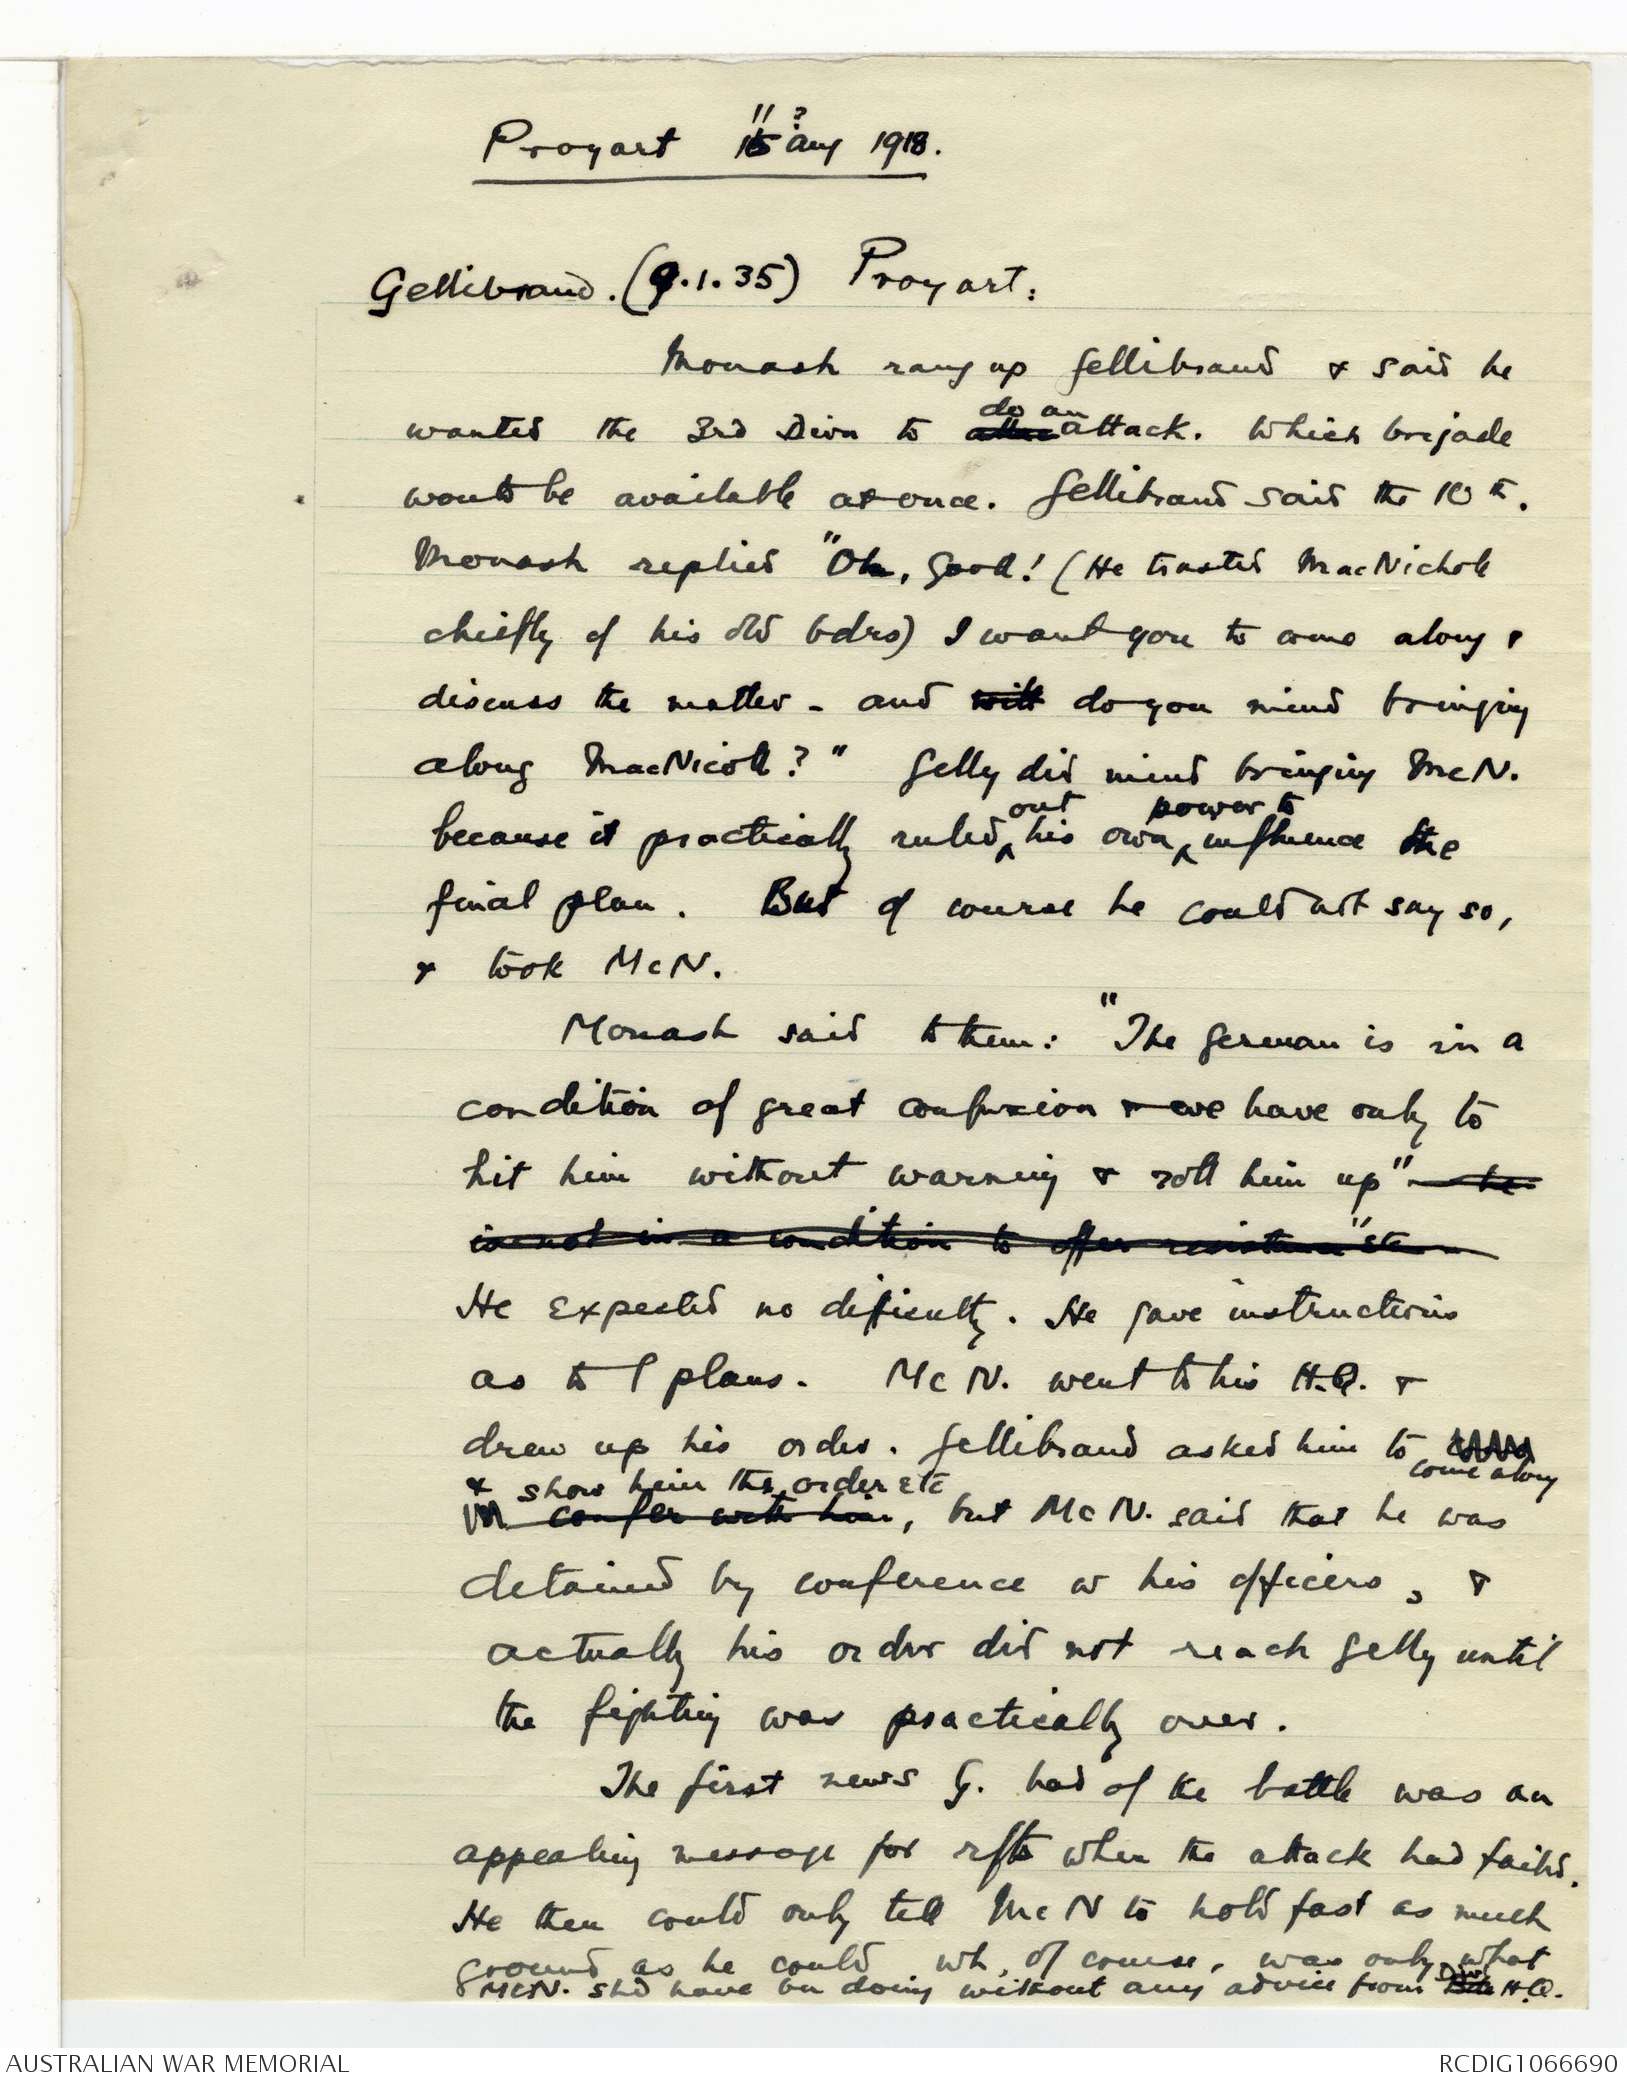 11 ?
Proyart 15 Aug 1918.
Gellibrand. (9.1.35) Proyart:
Monash rang up Gellibrand & said he
wanted the 3rd Divn to attac do an attack. Which brigade
would be available at once. Gellibrand said the 10th.
Monash replied "Oh, good! (He trusted MacNicholl
chiefly of his old bdrs) I want you to come along &
discuss the matter - and will do you mind bringing
along MacNicoll?" Gelly did mind bringing McN.
because it practically ruled out his own power to influence the
final plan. But of course he could not say so,
& took McN.
Monash said to them: "The German is in a
condition of great confusion & we have only to
hit him without warning & roll him up" he
is not in a condition to offer resistance" etc
He expected no difficulty. He gave instructions
as to / plans. McN. went to his H.Q. &
drew up his order. Gellibrand asked him to come along
& show him the order etc
confer with him, but McN. said that he was
detained by conference w his officers, &
actually his order did not reach Gelly until
the fighting was practically over.
The first news G. had of the battle was an
appealing message for rfts when the attack had failed.
He then could only tell McN to hold fast as much
ground as he could wh, of course, was only what
McN. shd have bn doing without any advice from Div H.Q.
AUSTRALIAN WAR MEMORIAL
RCDIG1066690